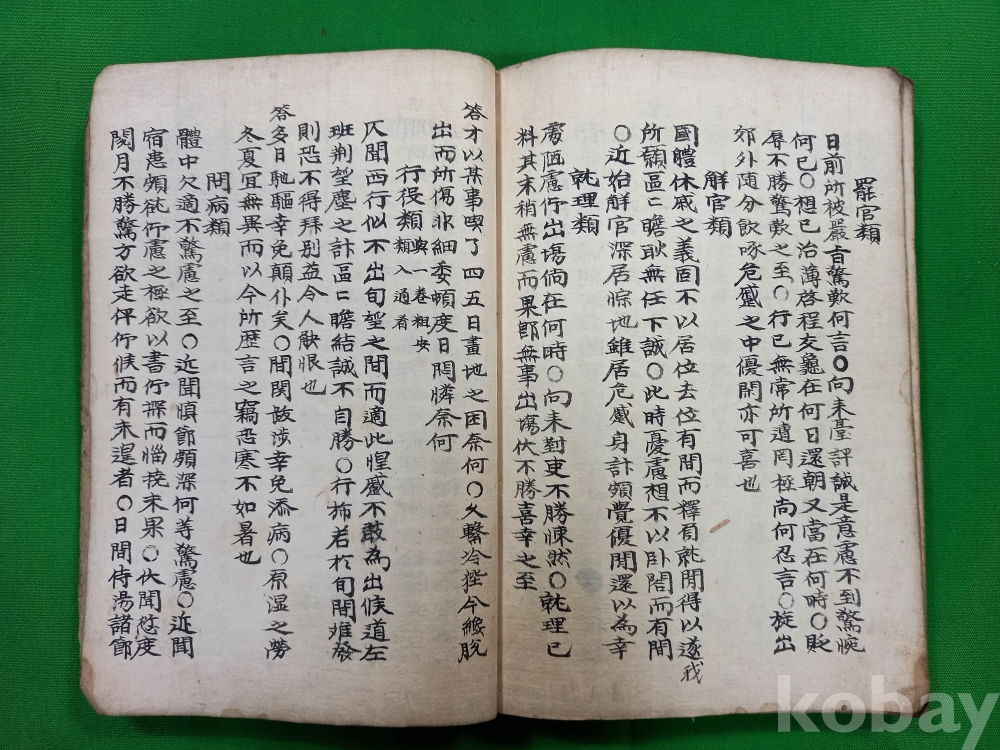 罷官類
日前所被嚴旨驚歎何言○向来臺評誠是意慮不到驚惋
何已○想已治薄啓程交龜在何日還朝又當在何時○貶
辱不勝驚歎之至○行已無常所遺罔極尚何忍言○旋出
郊外随分飮啄危蹙之中優閑亦可喜也
解官類
國體休戚之義固不以居位去位有間而釋負就閒得以遂我
所願區〻瞻耿無任下誠○此時憂慮想不以卧閤而有間
○近始解官深居悰地雖居危蹙身計頗覺優閒還以為幸
就理類
處陋慮仃出塲倘在何時○向来對吏不勝悚然○就理已
料其末稍無慮而果卽無事出塲伏不勝喜幸之至
答才以某事喫了四五日畫地之困奈何○久繫冷狴今纔脫
出而所傷非細委頓度日悶憐奈何
行役類 與一卷相安類入通看
仄聞西行似不出旬望之間而適此惶蹙不敢為出候道左
班荆望塵之計區〻瞻結誠不自勝○行旆若於旬間難發
則恐不得拜別益令人觖恨也
答多日馳驅幸免顛仆矣○間関跋涉幸免添病○原濕之勞
冬夏冝無異而以今所歷言之竊恐寒不如暑也
問病類
體中欠適不驚慮之至○近聞愼節頗深何等驚慮○近聞
宿患頻欲仃慮之極欲以書仃探而惱撓未果○伏聞愆度
閱月不勝驚方欲走伻仃候而有来遑者○日間侍湯諸節
kobay